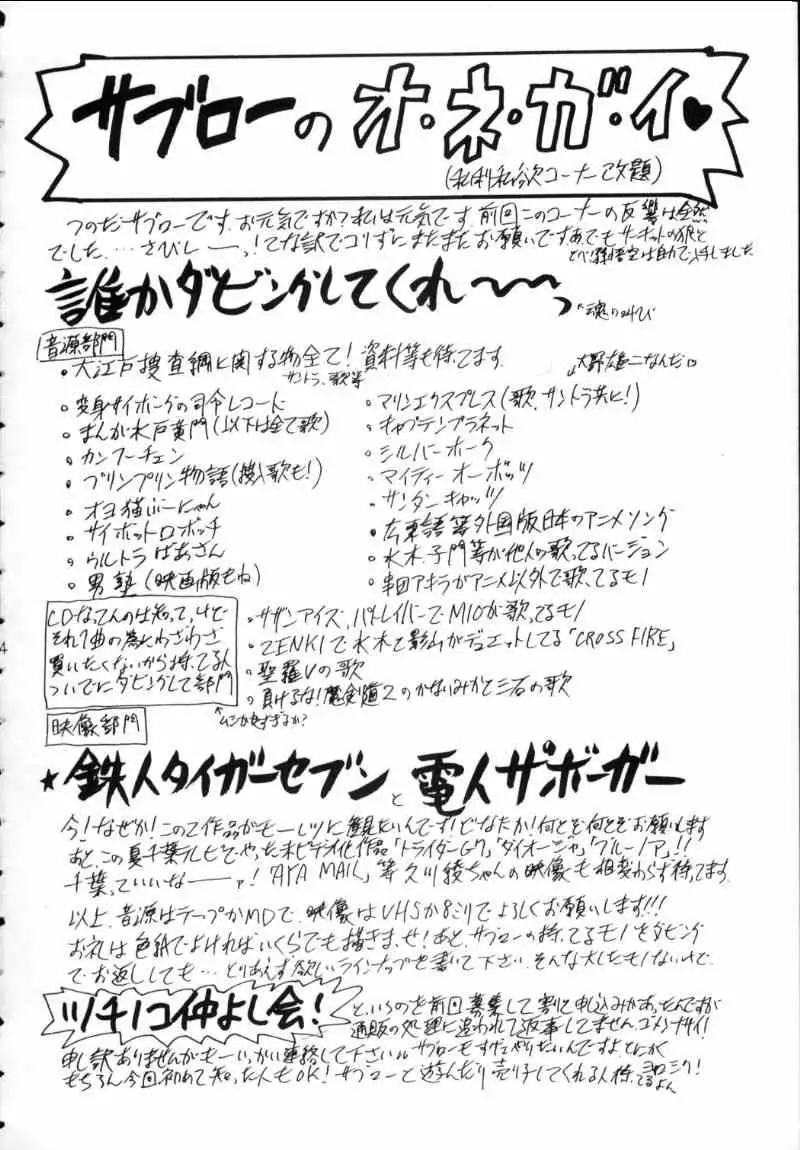 サブローのオ・ネ・ガ・イ♥
(私利私欲コーナー改題)
つのだサブローです。お元気ですか?私は元気です。前回このコーナーの反響は全然
でした…さびしーーっ!てな訳でコリずにまたまたお願いです。あ、でもサーキットの狼と
とべ!孫悟空は自力で入手しました
誰かダビングしてくれ〜〜っ
↑魂の叫び
音源部門
・大江戸捜査網に関する物全て!資料等も待ってます。
サントラ、歌等
↓大野雄二なんだ
・変身サイボーグの司令レコード
・まんが水戸黄門(以下は全て歌)
・カンフーチェン
・プリンプリン物語(挿入歌も!)
・オヨ猫ぶーにゃん
・サイボットロボッチ
・ウルトラばあさん
・男塾(映画版もね)
・マリンエクスプレス(歌、サントラ共に!)
・キャプテンプラネット
・シルバーホーク
・マイティーオーボッツ
・サンダーキャッツ
・広東語等外国版日本のアニメソング
・水木、子門等が他人の歌ってるバージョン
・串田アキラがアニメ以外で歌ってるモノ
CDなってんのは知ってっけど
それ1曲の為にわざわざ
買いたくないから持ってる人
ついでにダビングして部門
↑ムシが良すぎるか?
・サザンアイズ、パトレイバーでMIOが歌ってるモノ
・ZENKIで水木と影山がデュエットしてる「CROSS FIRE」
・聖羅Vの歌
・負けるな!魔剣道2のかないみかと三石の歌
映像部門
★鉄人タイガーセブンと電人ザボーガー
今!なぜか!この2作品がモーレツに観たいんです!どなたか!何とぞ何とぞお願いします
あと、この夏千葉テレビでやった未ビデオ化作品「トライダーG7」「ダイオージャ」「ブルーノア」!!
千葉っていいなーーァ!「AYA MAIL」等久川綾ちゃんの映像も相変わらず待ってます。
以上、音源はテープかMDで、映像はVHSか8ミリでよろしくお願いします!!!
お礼は色紙でよければいくらでも描きまっせ!あと、サブローの持ってるモノをダビング
でお返ししても…とりあえず欲しいラインナップを書いて下さい。そんな大したモノないけど
ツチノコ仲よし会!
というのを前回募集して割と申し込みがあったんですが
通販の処理に追われて返事してません。ゴメンナサイ!
申し訳ありませんがもーいっかい連絡して下さい。サブローもすげェやりたいんですよとにかく
もちろん今回初めて知った人もOK!サブローと遊んだり売り子してくれる人待ってるよん ヨロシク!